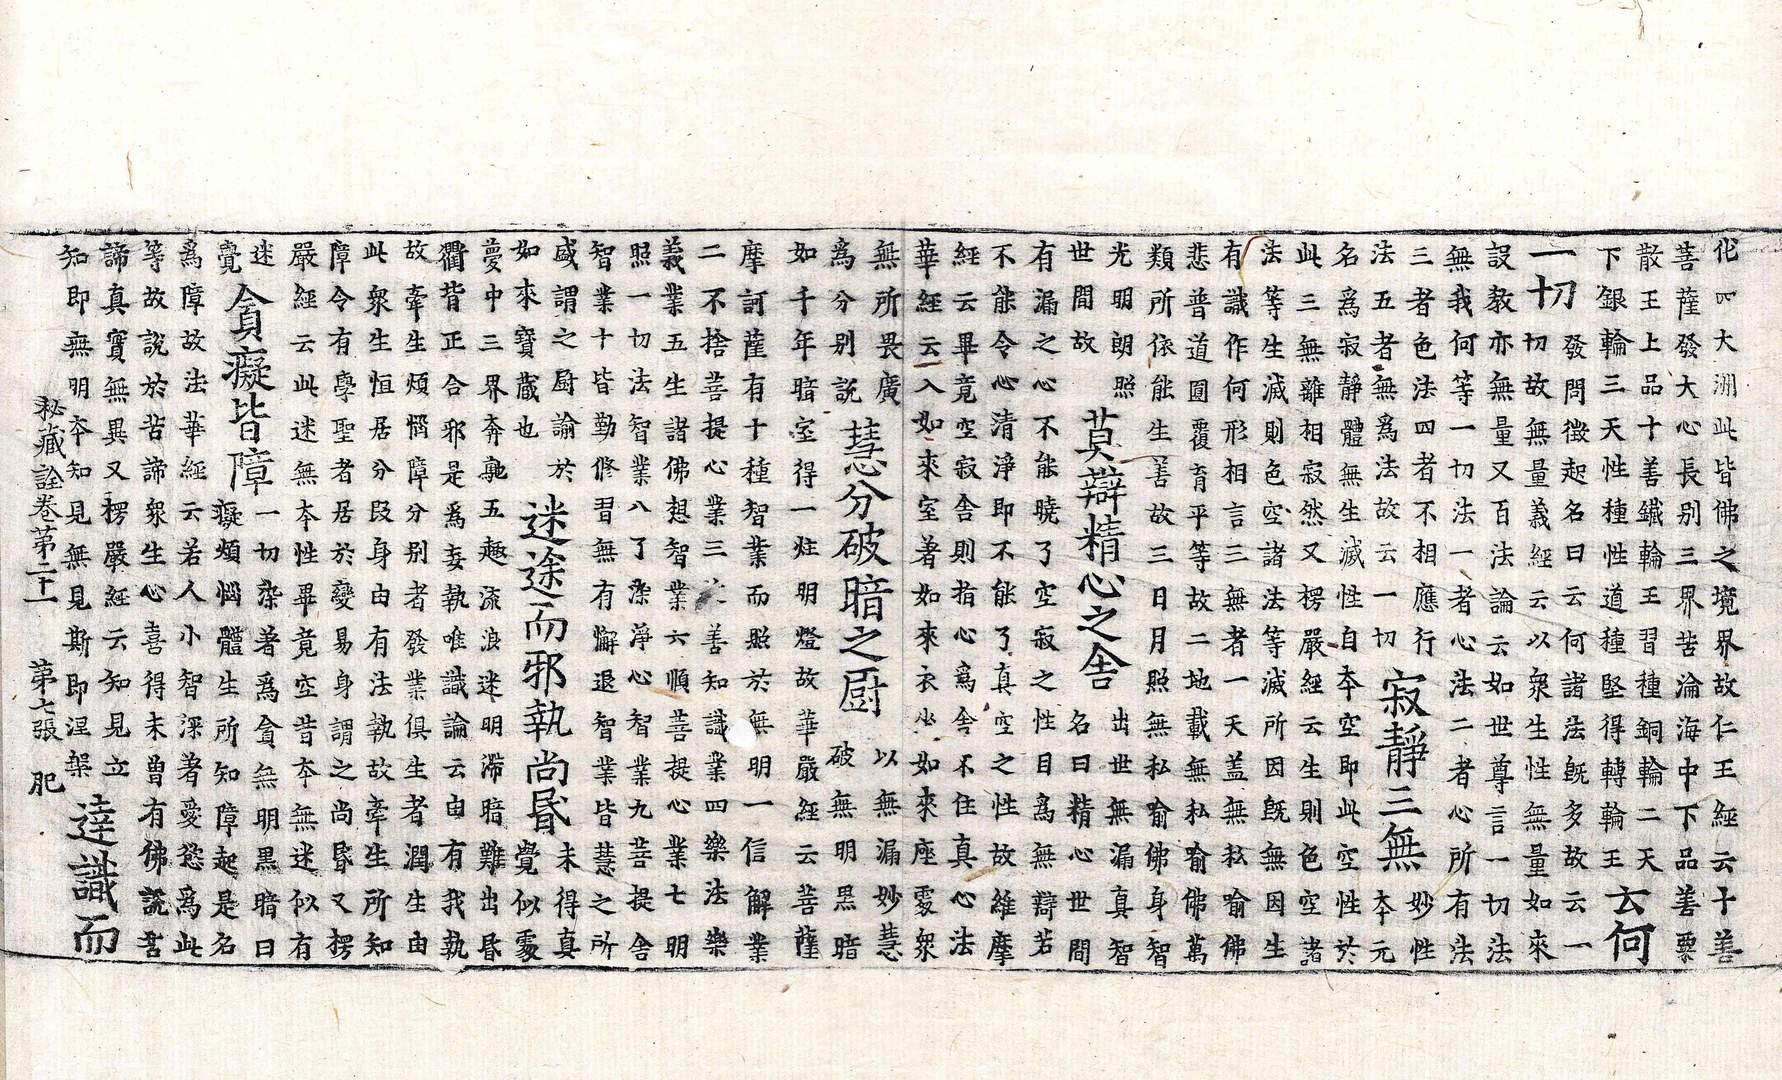 化四大洲此皆佛之境界故仁王經云十善
菩薩發大心長别三界苦淪海中下品善粟
散王上品十善鐵輪王習種銅輪二天
下銀輪三天性種性道種堅得轉輪王
云何
一切
發問徵起名曰云何諸法既多故云一
切故無量義經云以衆生性無量如來
設教亦無量又百法論云如世尊言一切法
無我何等一切法一者心法二者心所有法
三者色法四者不相應行
法五者無爲法故云一切
寂靜三無
妙性
本元
名爲寂靜體無生滅性自本空即此空性於
此三無離相寂然又楞嚴經云生則色空諸
法等生滅則色空諸法等滅所因既無因生
有識作何形相言三無者一天盖無私喻佛
悲普道圓覆育平等故二地載無私喻佛萬
類所依能生善故三日月照無私喻佛身智
光明朗照
世間故
莫辯精心之舍
出世無漏真智
名曰精心世間
有漏之心不能曉了空寂之性目爲無辯若
不能令心清淨即不能了真空之性故維摩
經云畢竟空寂舍則指心爲舍不住真心法
華經云入如來室著如來衣坐如來座處衆
無所畏廣
爲分别説
慧分破暗之厨
以無漏妙慧
破無明黑暗
如千年暗室得一炷明燈故華嚴經云菩薩
摩訶薩有十種智業而照於無明一信解業
二不捨菩提心業三善知識業四樂法樂
義業五生諸佛想智業六順菩提心業七明
照一切法智業八了染淨心智業九菩提舍
智業十皆勤修習無有懈退智業皆慧之所
盛謂之厨喻於
如來寶藏也
迷途而邪執尚昬
未得真
覺似處
夢中三界奔馳五趣流浪迷明滯暗難出昬
衢背正合邪是爲妄執唯識論云由有我執
故牽生煩惱障分别者發業俱生者潤生由
此衆生恒居分段身由有法執故牽生所知
障令有學聖者居於變易身謂之尚昬又楞
嚴經云此迷無本性畢竟空昔本無迷似有
迷
覺
貪癡皆障
一切染著爲貪無明黑暗曰
癡煩惱體生所知障起是名
爲障故法華經云若人小智深著愛慾爲此
等故説於苦諦衆生心喜得未曾有佛説苦
諦真實無異又楞嚴經云知見立
知即無明本知見無見斯即涅槃
達識而
秘藏詮卷第二十一　第七張　肥